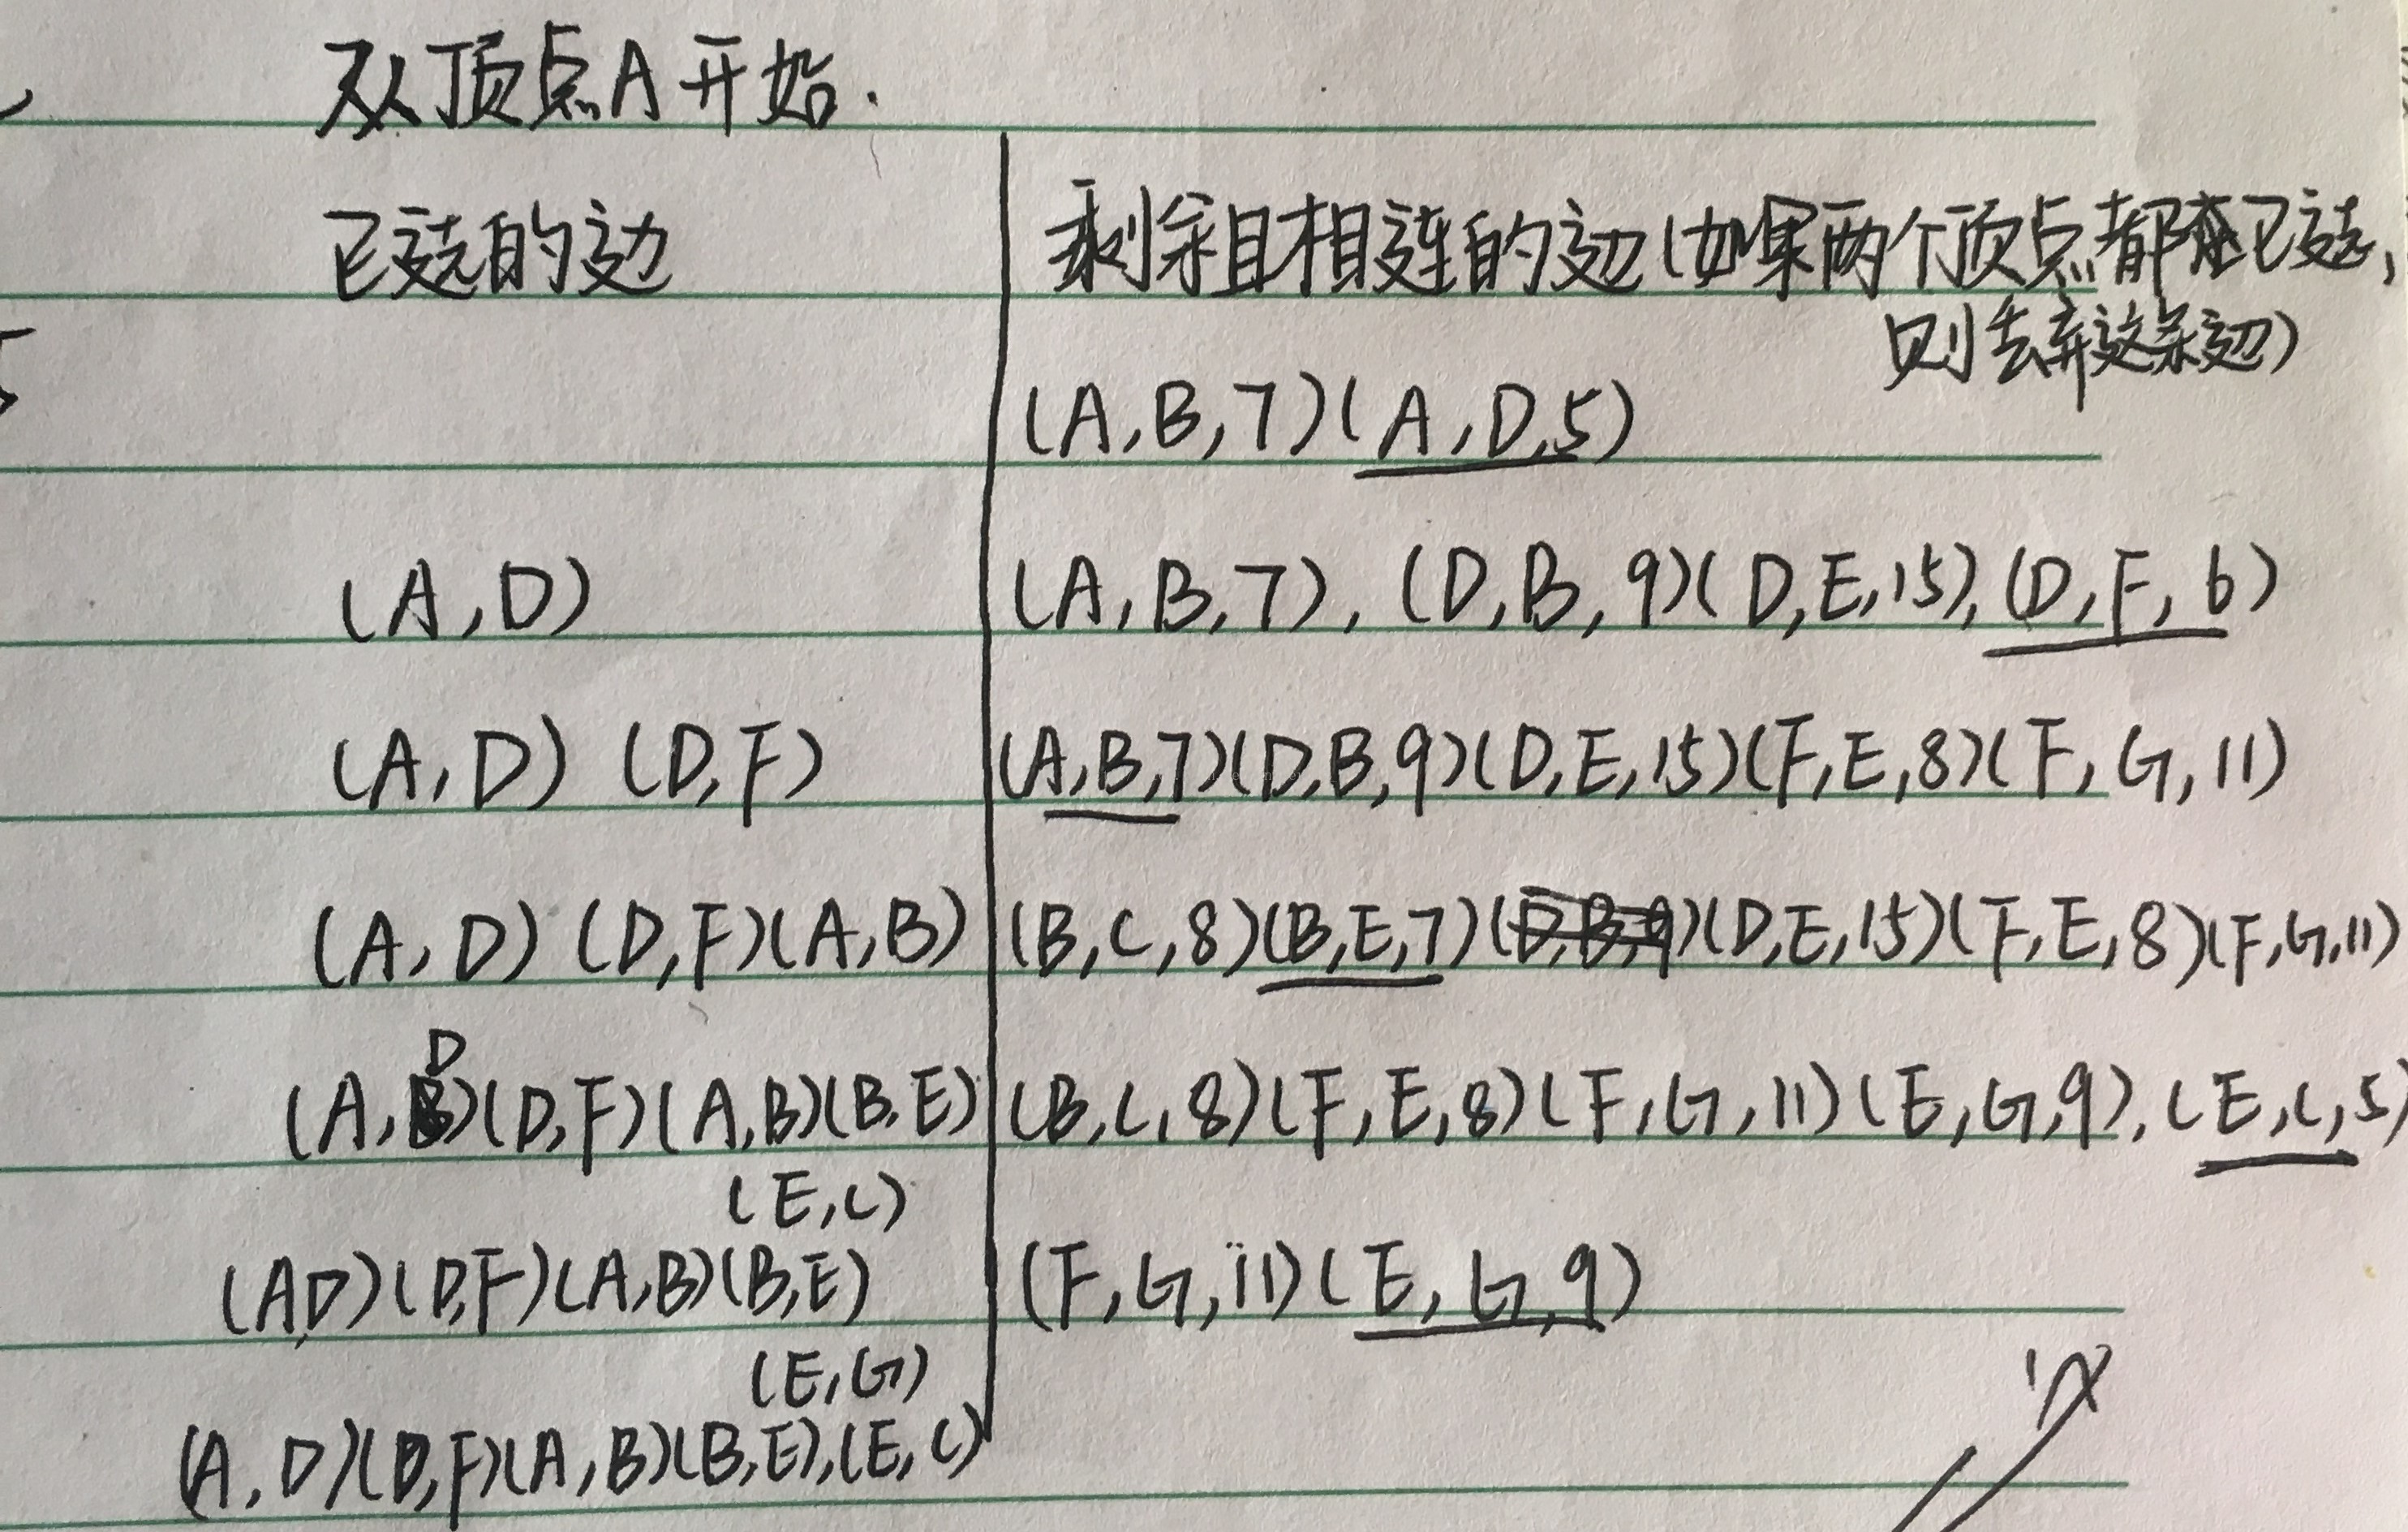 从顶点A开始.
已选的边 剩余且相连的边(如果两个顶点都在已选,
则丢弃这条边)
(A,B,7)(A,D,5)
(A,D) (A,B,7),(D,B,9)(D,E,15),(D,F,6)
(A,D) (D,F) (A,B,7)(D,B,9)(D,E,15)(F,E,8)(F,G,11)
(A,D) (D,F)(A,B) (B,C,8)(B,E,7)(D,B,9)(D,E,15)(F,E,8)(F,G,11)
D
(A,B)(D,F)(A,B)(B,E) (B,C,8)(F,E,8)(F,G,11)(E,G,9),(E,C,5)
(E,C)
(A,D)(D,F)(A,B)(B,E) (F,G,11)(E,G,9)
(E,G)
(A,D)(D,F)(A,B)(B,E),(E,C)